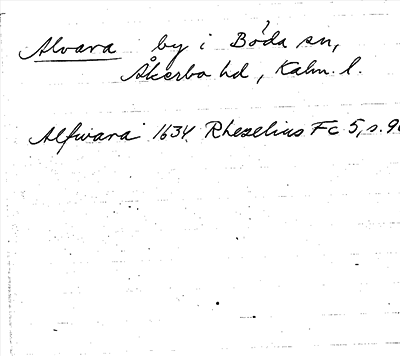 Alvara by i Böda sn,
Åkerbo hd, Kalm. l.
Alfwara 1634 Rhezelius Fc 5, s. 90